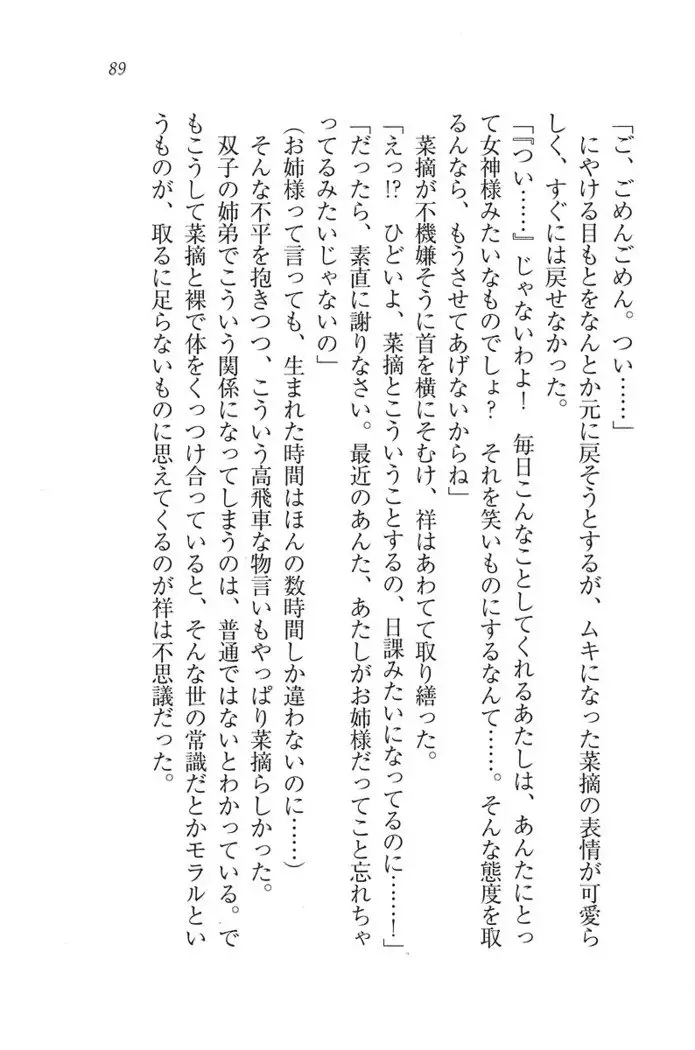 89
「ご、ごめんごめん。つい……」
にやける目もとをなんとか元に戻そうとするが、ムキになった菜摘の表情が可愛ら
しく、すぐには戻せなかった。
「『つい……』じゃないわよ！　毎日こんなことしてくれるあたしは、あんたにとっ
て女神様みたいなものでしょ？　それを笑いものにするなんて……。そんな態度を取
るんなら、もうさせてあげないからね」
菜摘が不機嫌そうに首を横にそむけ、祥はあわてて取り繕った。
「えっ!?　ひどいよ、菜摘とこういうことするの、日課みたいになってるのに……！」
「だったら、素直に謝りなさい。最近のあんた、あたしがお姉様だってこと忘れちゃ
ってるみたいじゃないの」
（お姉様って言っても、生まれた時間はほんの数時間しか違わないのに……）
そんな不平を抱きつつ、こういう高飛車な物言いもやっぱり菜摘らしかった。
双子の姉弟でこういう関係になってしまうのは、普通ではないとわかっている。で
もこうして菜摘と裸で体をくっつけ合っていると、そんな世の常識だとかモラルとい
うものが、取るに足らないものに思えてくるのが祥は不思議だった。